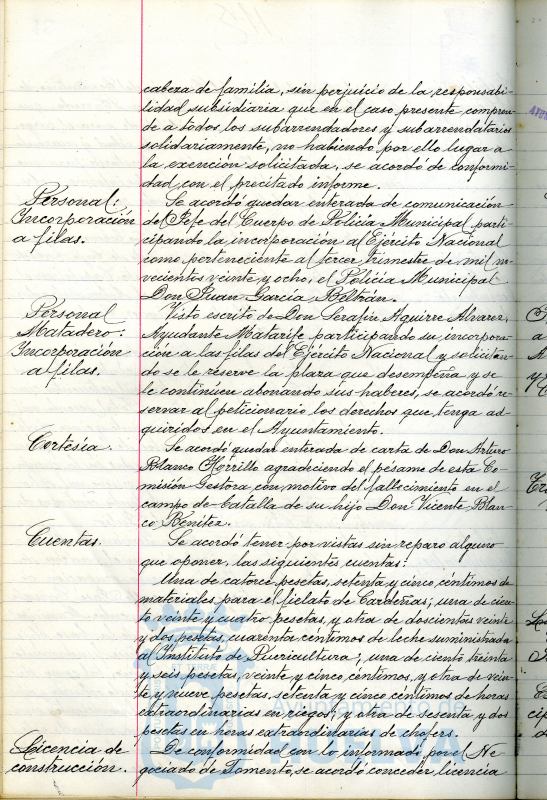 cabeza de familia, sin perjuicio de la responsabi-
lidad subsidiaria que en el caso presente compren-
de a todos los subarrendadores y subarrendatarios
solidariamente, no habiendo por ello lugar a
la exención solicitada, se acordó de conformi-
dad con el precitado informe.
Personal:
Incorporación
a filas.
Se acordó quedar enterada de comunicación
del Jefe del Cuerpo de Policía Municipal parti-
cipando la incorporación al Ejército Nacional
como perteneciente al tercer trimestre de mil no-
vecientos veinte y ocho, el Policía Municipal
Don Juan García Beltrán.
Personal
Matadero:
Incorporación
a filas.
Visto escrito de Don Serafín Aguirre Alvarez,
Ayudante Matarife participando su incorpora-
ción a las filas del Ejército Nacional y solicitan-
do se le reserve la plaza que desempeña y se
le continúen abonando sus haberes, se acordó re-
servar al peticionario los derechos que tenga ad-
quiridos en el Ayuntamiento.
Cortesía.
Se acordó quedar enterada de carta de Don Arturo
Blanco Horrillo agradeciendo el pésame de esta Co-
misión Gestora con motivo del fallecimiento en el
campo de batalla de su hijo Don Vicente Blan-
co Benítez.
Cuentas.
Se acordó tener por vistas sin reparo alguno
que oponer, las siguientes cuentas:
Una de catorce pesetas, setenta y cinco céntimos de
materiales para el fielato de Cardeñas; una de cien-
to veinte y cuatro pesetas, y otra de doscientas veinte
y dos pesetas, cuarenta céntimos de leche suministrada
al Instituto de Puericultura; una de ciento treinta
y seis pesetas, veinte y cinco céntimos, y otra de vein-
te y nueve pesetas, setenta y cinco céntimos de horas
extraordinarias en riegos; y otra de sesenta y dos
pesetas en horas extraordinarias de chofers.
Licencia de
construcción.
De conformidad con lo informado por el Ne-
gociado de Fomento, se acordó conceder licencia
Ayuntamiento de